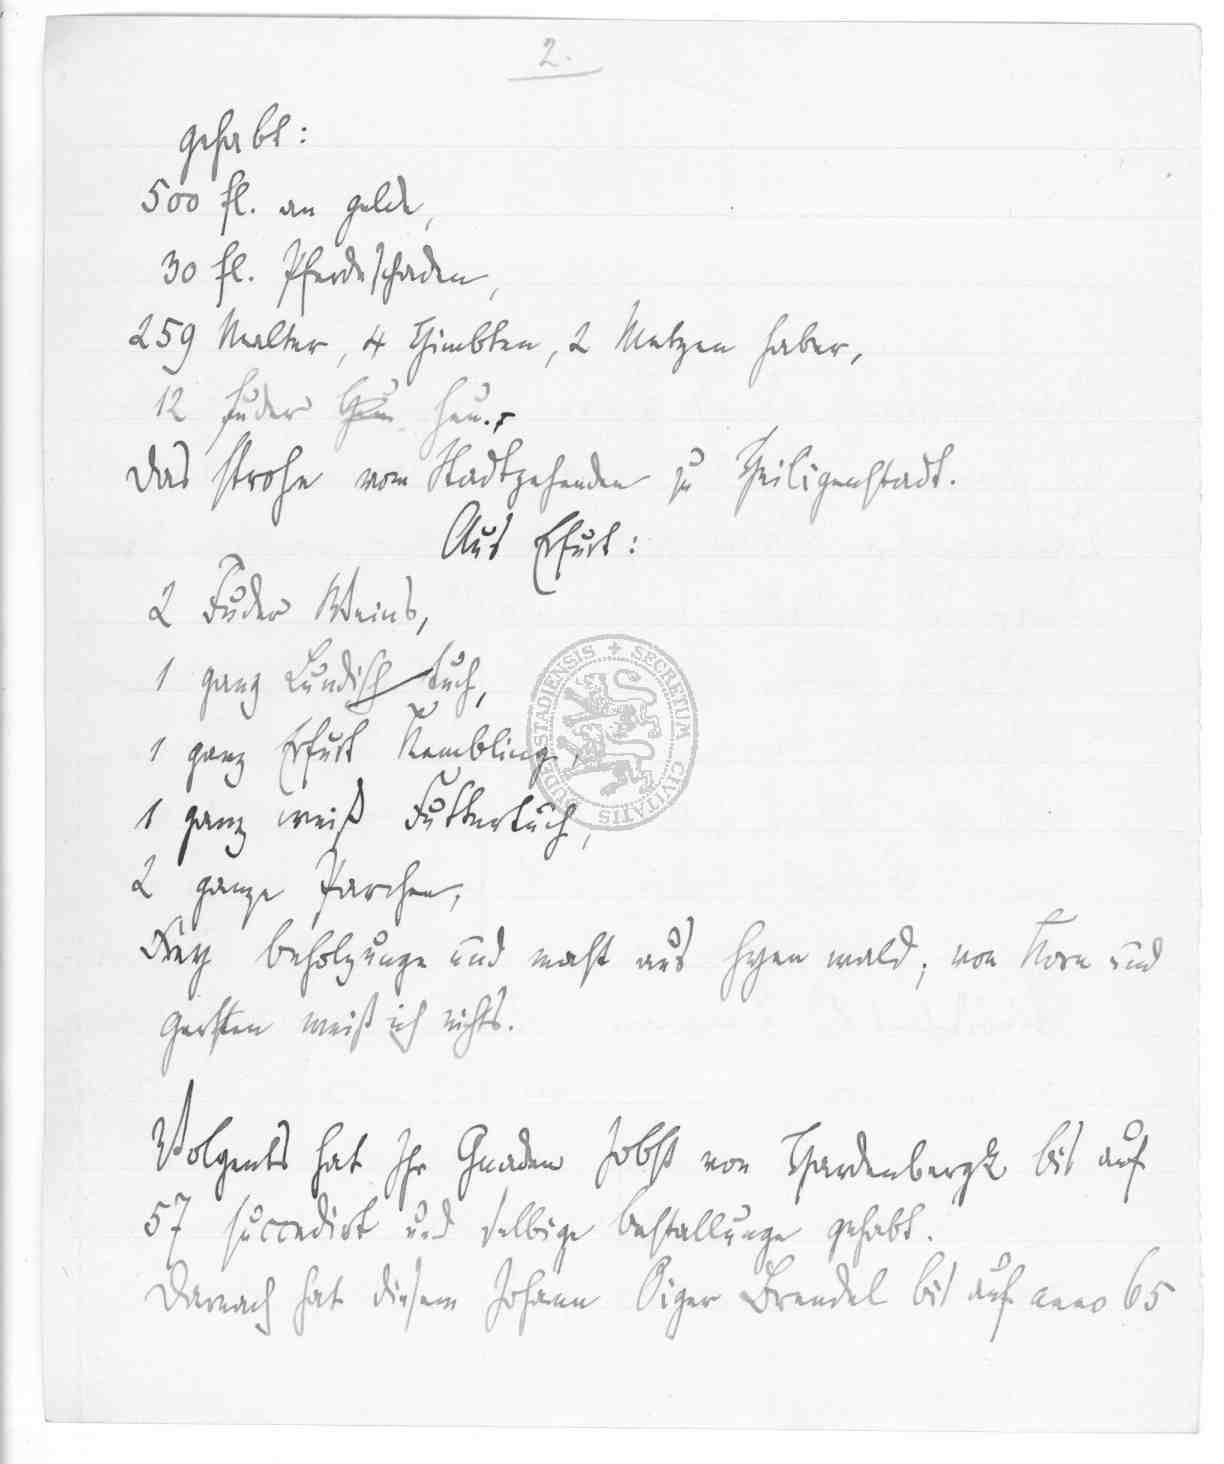 2.
gehabt:
500 fl. an gelde,
30 fl. Pferdeschaden,
259 Malter, 4 Himbten, 2 Metzen haber,
12 Fuder heu.
Das strohe vom Stadtzehenden zu Heiligenstadt.
Aus Erfurt:
2 Fuder Weins,
1 ganz Lundisch tuch,
1 ganz Erfurt Kembling,
1 ganz weiß Futtertuch,
2 ganze Parchen,
Frey beholzunge und mast aus wald; von Korn und
gersten weiß ich nichts.
Volgents hat Ihr Gnaden Jobst von Hardenbergk bis auf
57 succedirt und selbige bestallunge gehabt.
Darnach hat diesem Johann Oiger Brendel bis auf anno 65
SECRETUM CIVITATIS DUDERSTADIENSIS